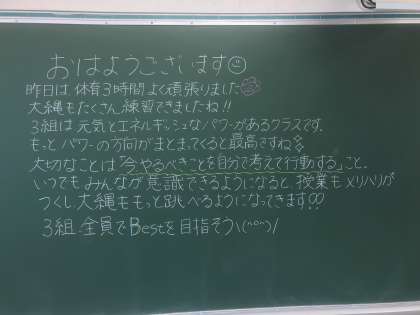 おはようございます☺
昨日は体育3時間よく頑張りました
大縄もたくさん練習できましたね!!
3組は元気とエネルギッシュなパワーがあるクラスです。
もっとパワーの方向がまとまってくると最高ですね
大切なことは「今やるべきことを自分で考えて行動する」こと。
いつでもみんなが意識できるようになると、授業もメリハリが
つくし、大縄ももっと跳べるようになってきます!!
3組全員でBestを目指そう\(^o^)/